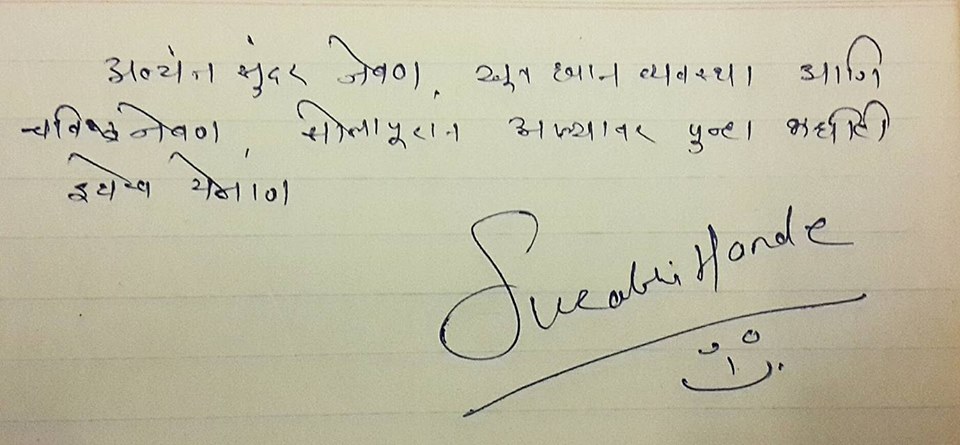 अत्यंत सुंदर जेवण, खूप छान व्यवस्था आणि
चविष्ट जेवण, सोलापूरात असल्यावर पुन्हा
इथेच येणार
Surabhi Hande